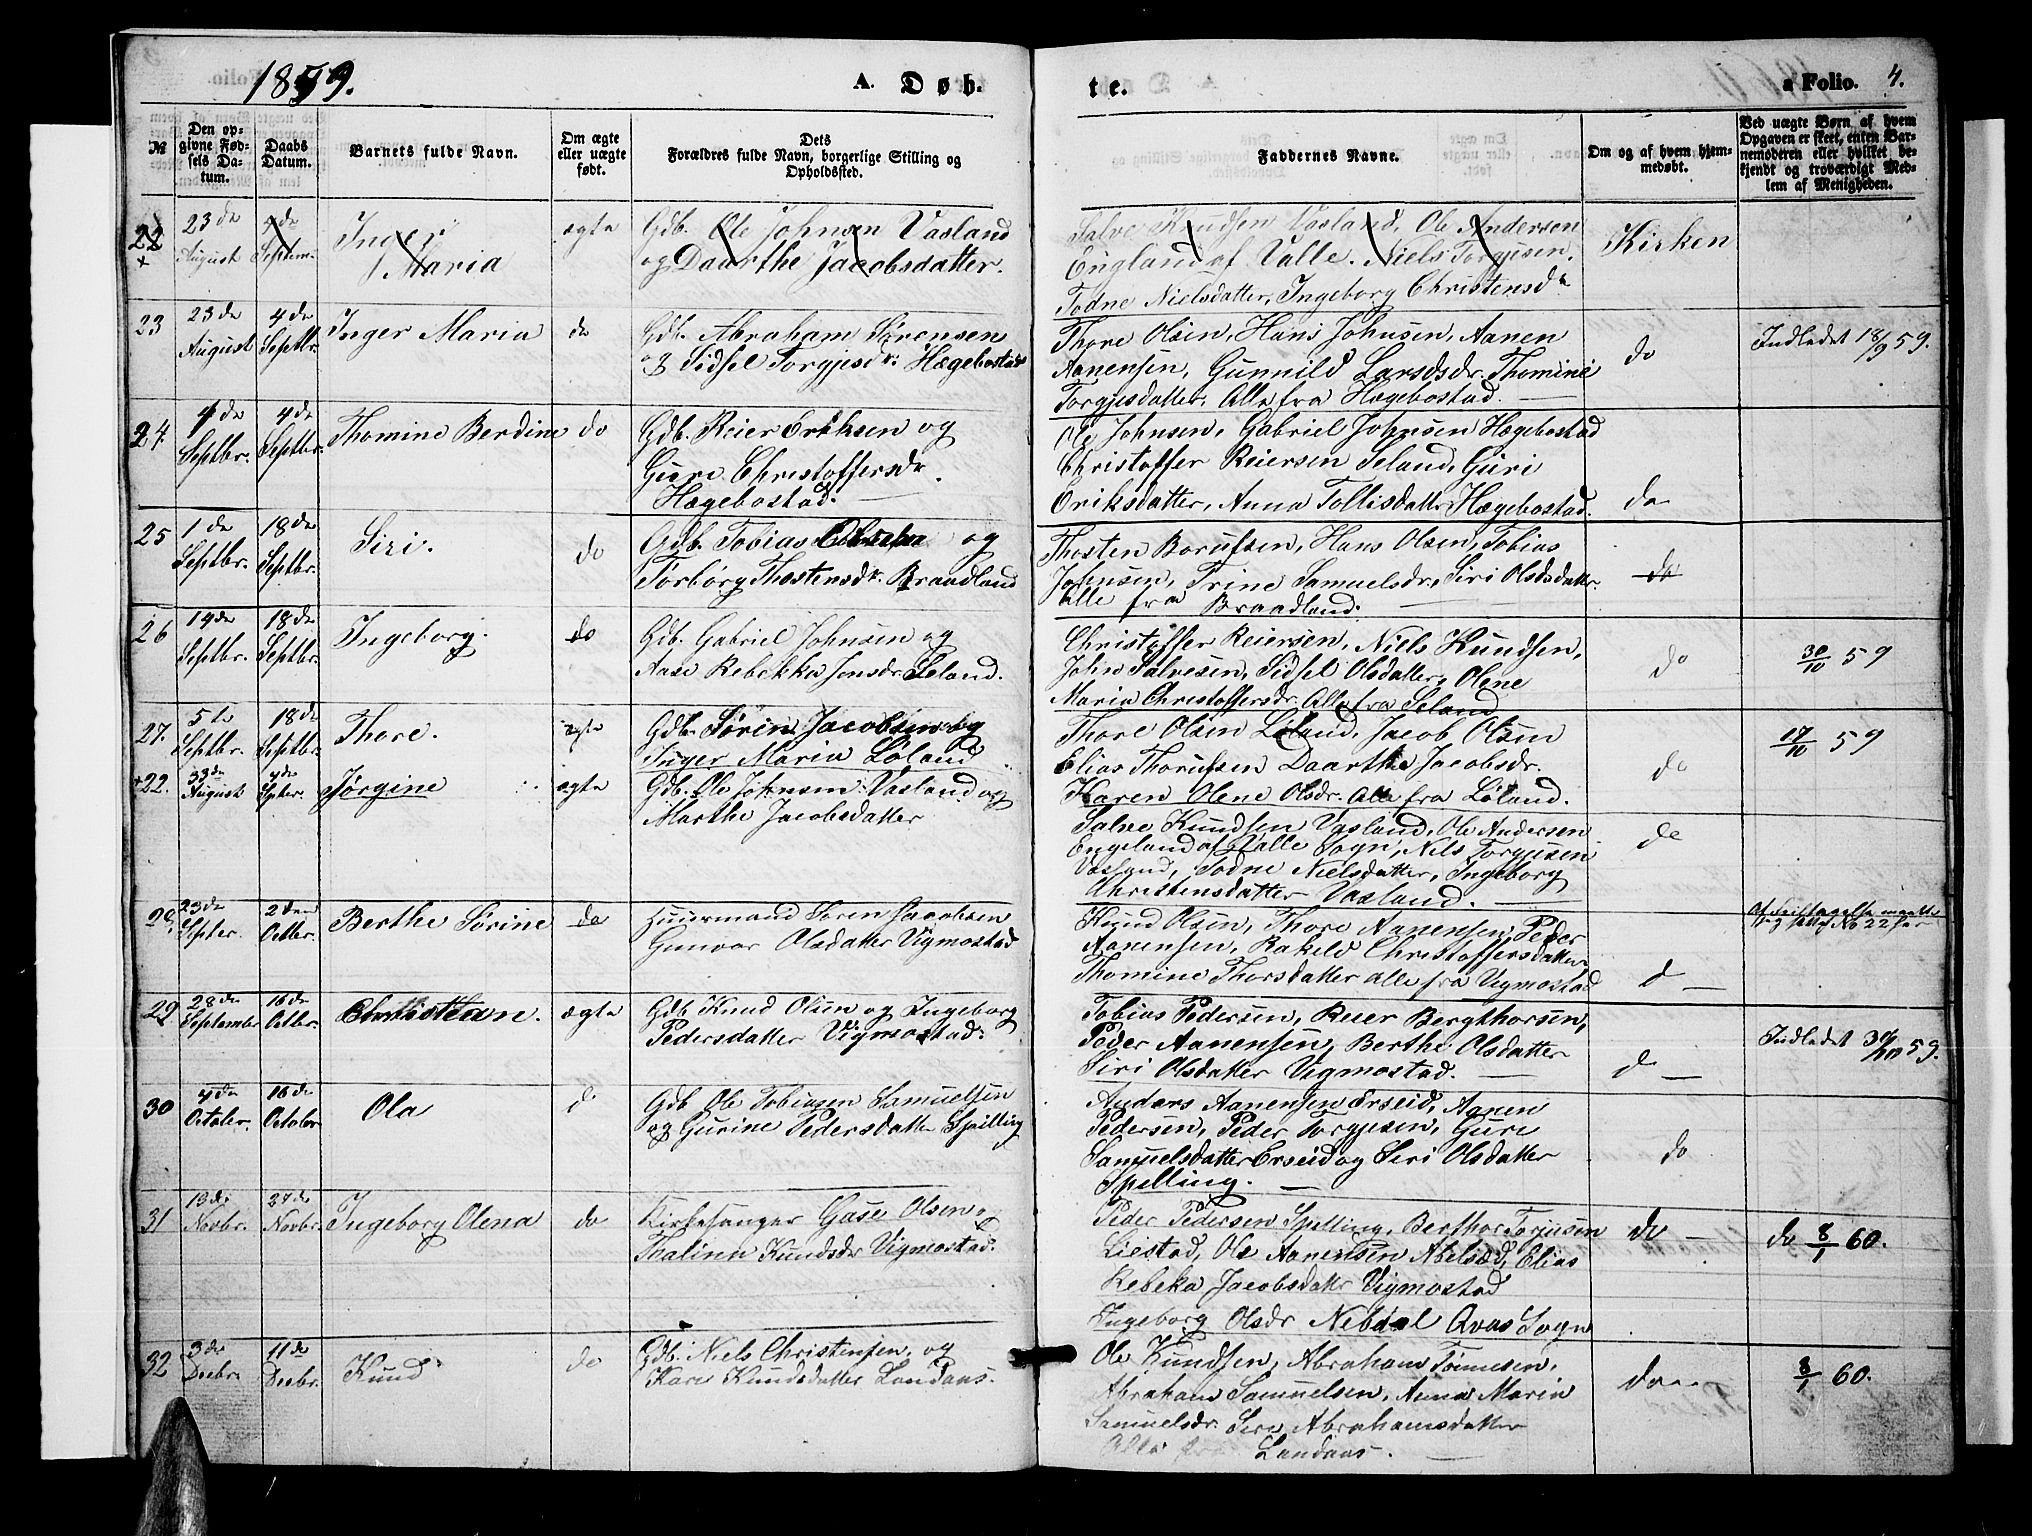 1859.
A. Døb.
te.
a Folio. 4.
№
Den opgivne Fødsels Datum.
Daabs Datum.
Barnets fulde Navn.
Om ægte eller uægte født.
Dets Forældres fulde Navn, borgerlige Stilling og Opholdssted.
Faddernes Navne.
Om og af hvem hjemmedøbt.
Ved uægte Børn af hvem Opgaven er skeet, enten Barnemoderen eller hvilket bekjendt og troværdigt Medlem af Menigheden.
22 +
23 de August
4 de Septem.
Inger Maria
ægte
Gdb. Ole Johnsen Vasland
og Daarthe Jacobsdatter.
Salve Knudsen Vasland, Ole Andersen
England af Valle. Niels Torgjesen,
Todne Nielsdatter, Ingeborg Christensdr
Kirken
23
23 de August
4 de Septbr.
Inger Maria
do
Gdb. Abraham Sørensen
og Sidsel Torgjesdr: Hægebostad
Thore Olsen, Hans Johnsen, Aanen
Aanensen, Gunnild Larsdsdr. Thomine
Torgjesdatter. Alle fra Hægebostad.
do
Indledet 18/9 59.
24.
4 de Septbr.
4 de Septbr.
Thomine Berdine
do
Gdb. Reier Eriksen og
Guri Christoffersdr.
Hægebostad.
Ole Johnsen, Gabriel Johnsen Hægebostad
Christoffer Reiersen Seland, Guri
Eriksdatter, Anna Tollisdatter Hægebostad.
do
25
1 de Septbr.
18 de Septbr.
Siri.
do
Gdb. Tobias og
Torborg Thostensdr. Braadland
Thosten Borufsen, Hans Olsen, Tobias
Johnsen, Trine Samuelsdr, Siri Olsdsdatter
Alle fra Braadland.
do
26
14 de Septbr.
18 de Septbr.
Ingeborg.
do
Gdb. Gabriel Johnsen og
Aase Rebekka Jonsdr. Seland.
Christoffer Reiersen, Niels Knudsen,
John Salvesen, Sidsel Olsdatter, Olene
Maria Christoffersdr. Alle fra Seland
do
30/10 59
27.
5 te Septbr.
18 de Septbr.
Thore.
ægte
Gdb. Søren Jacobsen og
Inger Maria Løland
Thore Olsen Løland, Jacob Olsen
Elias Thorufsen Daarthe Jacobsdr.
Karen Olene Olsdr. Alle fra Løland.
do
17/10 59
+22.
23 de August
4 de Septer.
Jørgine
ægte
Gdb. Ole Johnsen Vasland og
Marthe Jacobsdatter
Salve Knudsen Vasland, Ole Andersen
Engeland af Valle Sogn, Nils Torgjusen
Vasland, Todne Nielsdatter, Ingeborg
Christensdatter Vasland.
do
28,
23 de Septer.
2 den Octbr.
Berthe Sørine
do
Huusmand Søren Jacobsen
Gunvor Olsdatter Vigmostad
Knud Olsen, Thore Aanensen, Peder
Aanensen, Rakeld Christoffersdatter
Thomine Thorsdatter alle fra Vigmostad
d —
No 22 før
29
28 de September
16 de Octbr.
Christian.
ægte
Gdb Knud Olsen og Ingeborg
Pedersdatter Vigmostad.
Tobias Pedersen, Reier Bergthorsen,
Peder Aanensen, Berthe Olsdatter
Siri Olsdatter Vigmostad.
d —
Indledet 30/10 59.
30
4 de October.
16 de October
Ola
d
Gdb Ole Tobiasen Samuelsen
og Gurine Pedersdatter Spilling
Anders Aanensen Erseid, Aanen
Pedersen, Peder Torgjesen, Guri
Samuelsdatter Erseid og Siri Olsdatter
Spelling.
do
31
13 de Novbr.
27 de Novbr.
Ingeborg Olena
do
Kirkesanger Gase Olsen og
Tealine Knudsdr Vigmostad.
Peder Pedersen Spelling, Berthor Torjusen
Liestad, Ole Aanensen Abelsæd, Elias
Rebeka Jacobsdatter Vigmostad
Ingeborg Olsdr Nebdal Qvas Sogn
do —
do 8/1 60.
32
3 de Decbr.
11 de Decbr.
Knud
do
Gdb. Niels Christensen, og
Kari Knudsdatter Landaas.
Ole Knudsen, Abraham Tønnesen,
Abraham Samuelsen, Anna Maria
Samuelsdr. Siri Abrahamsdatter
Alle fra Landaas.
do
8/1 60.